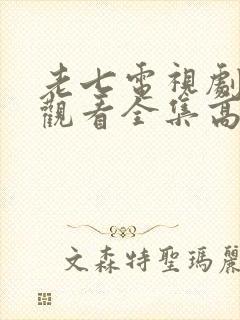 老七電視劇
觀看全集高
文森特聖瑪麗